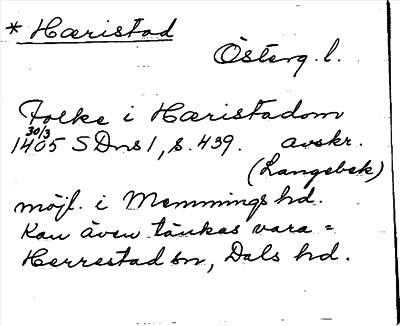 * Hæristad
Österg. l.
Folke i Hæristadom
30/3
1405 SDns 1, s. 439. avskr.
(Langebek)
möjl. i Memmings hd.
Kan även tänkas vara =
Herrestad sn, Dals hd.